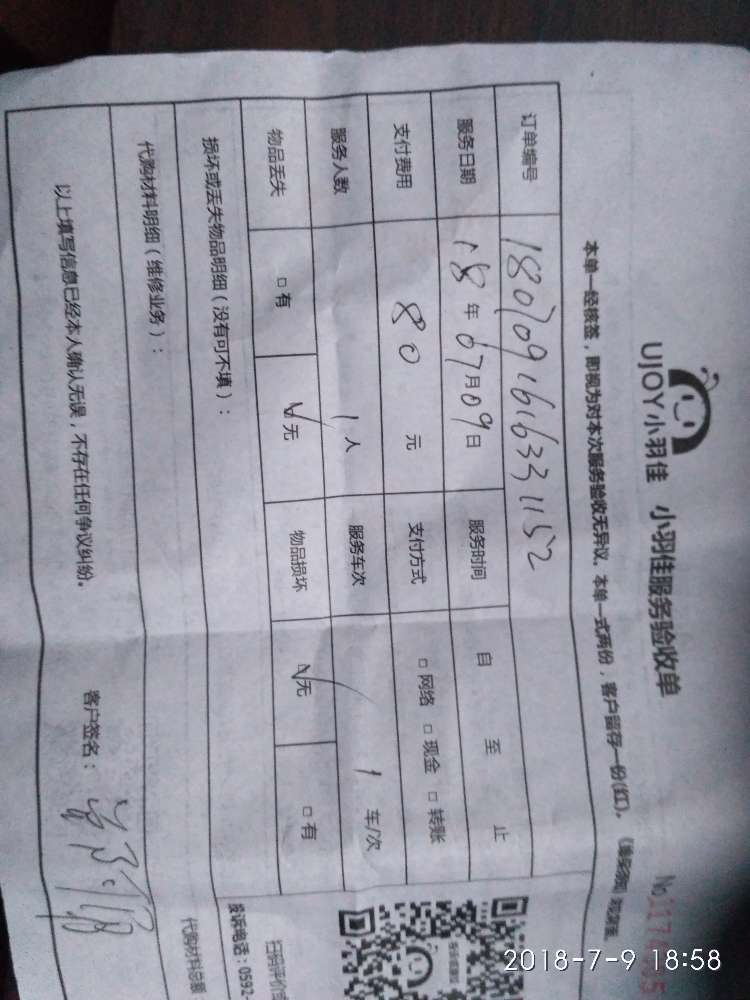 UJOY小羽佳 小羽佳服务验收单
本单一经核签，即视为对本次服务验收无异议。本单一式两份，客户留存一份(红)。
订单编号 1807091616331152
服务日期 18年07月09日 服务时间 自 至 止
支付费用 80元 支付方式 □网络 □现金 □转账
服务人数 1人 服务车次 1车/次
物品丢失 □有 ☑无 物品损坏 ☑无 □有
损坏或丢失物品明细（没有可不填）：
代购材料明细（维修业务）：
代购材料总额
以上填写信息已经本人确认无误，不存在任何争议纠纷。 客户签名：
扫码评价
投诉电话：0592-
2018-7-9 18:58